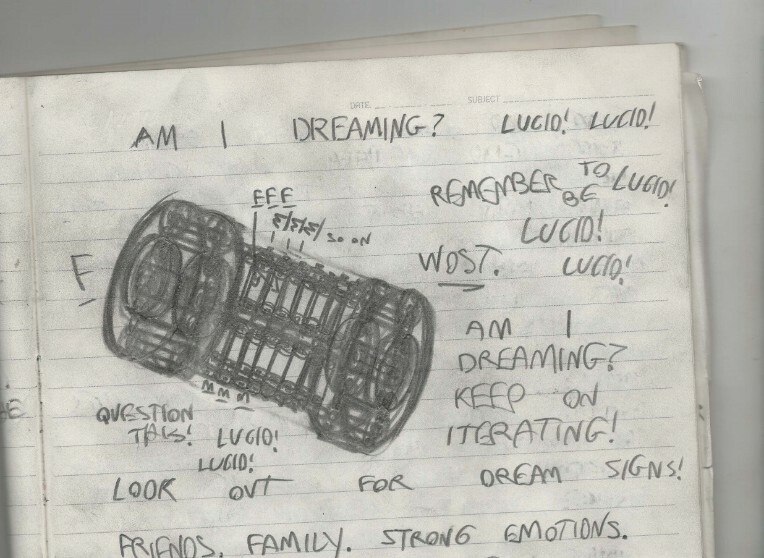 DATE SUBJECT
AM I DREAMING? LUCID! LUCID!
REMEMBER TO BE LUCID!
LUCID!
LUCID!
SO ON
F
AM I
DREAMING?
KEEP ON
ITERATING!
M M M
QUESTION
THIS! LUCID!
LUCID!
LOOK OUT FOR DREAM SIGNS!
FRIENDS, FAMILY. STRONG EMOTIONS.